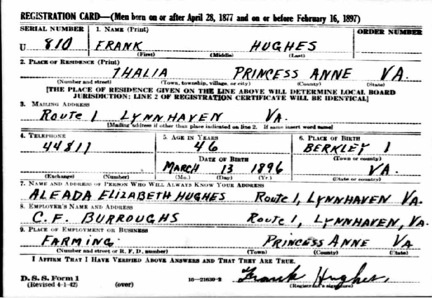 REGISTRATION CARD—(Men born on or after April 28, 1877 and on or before February 16, 1897)
SERIAL NUMBER 1. NAME (Print) ORDER NUMBER
U 810 FRANK HUGHES
(First) (Middle) (Last)
2. PLACE OF RESIDENCE (Print)
THALIA PRINCESS ANNE VA.
(Number and street) (Town, township, village, or city) (County) (State)
[THE PLACE OF RESIDENCE GIVEN ON THE LINE ABOVE WILL DETERMINE LOCAL BOARD
JURISDICTION; LINE 2 OF REGISTRATION CERTIFICATE WILL BE IDENTICAL]
3. MAILING ADDRESS
ROUTE 1 LYNNHAVEN VA.
[Mailing address if other than place indicated on line 2. If same insert word same]
4. TELEPHONE 5. AGE IN YEARS 6. PLACE OF BIRTH
44811 46 BERKLEY
DATE OF BIRTH (Town or county)
MARCH 13 1896 VA.
(Exchange) (Number) (Mo.) (Day) (Yr.) (State or country)
7. NAME AND ADDRESS OF PERSON WHO WILL ALWAYS KNOW YOUR ADDRESS
ALEADA ELIZABETH HUGHES ROUTE 1, LYNNHAVEN, VA.
8. EMPLOYER'S NAME AND ADDRESS
C. F. BURROUGHS ROUTE 1, LYNNHAVEN, VA.
9. PLACE OF EMPLOYMENT OR BUSINESS
FARMING PRINCESS ANNE VA
(Number and street or R. F. D. number) (Town) (County) (State)
I AFFIRM THAT I HAVE VERIFIED ABOVE ANSWERS AND THAT THEY ARE TRUE.
D. S. S. Form 1
(Revised 4-1-42) (over) 16—21630-2 Frank Hughes
(Registrant's signature)